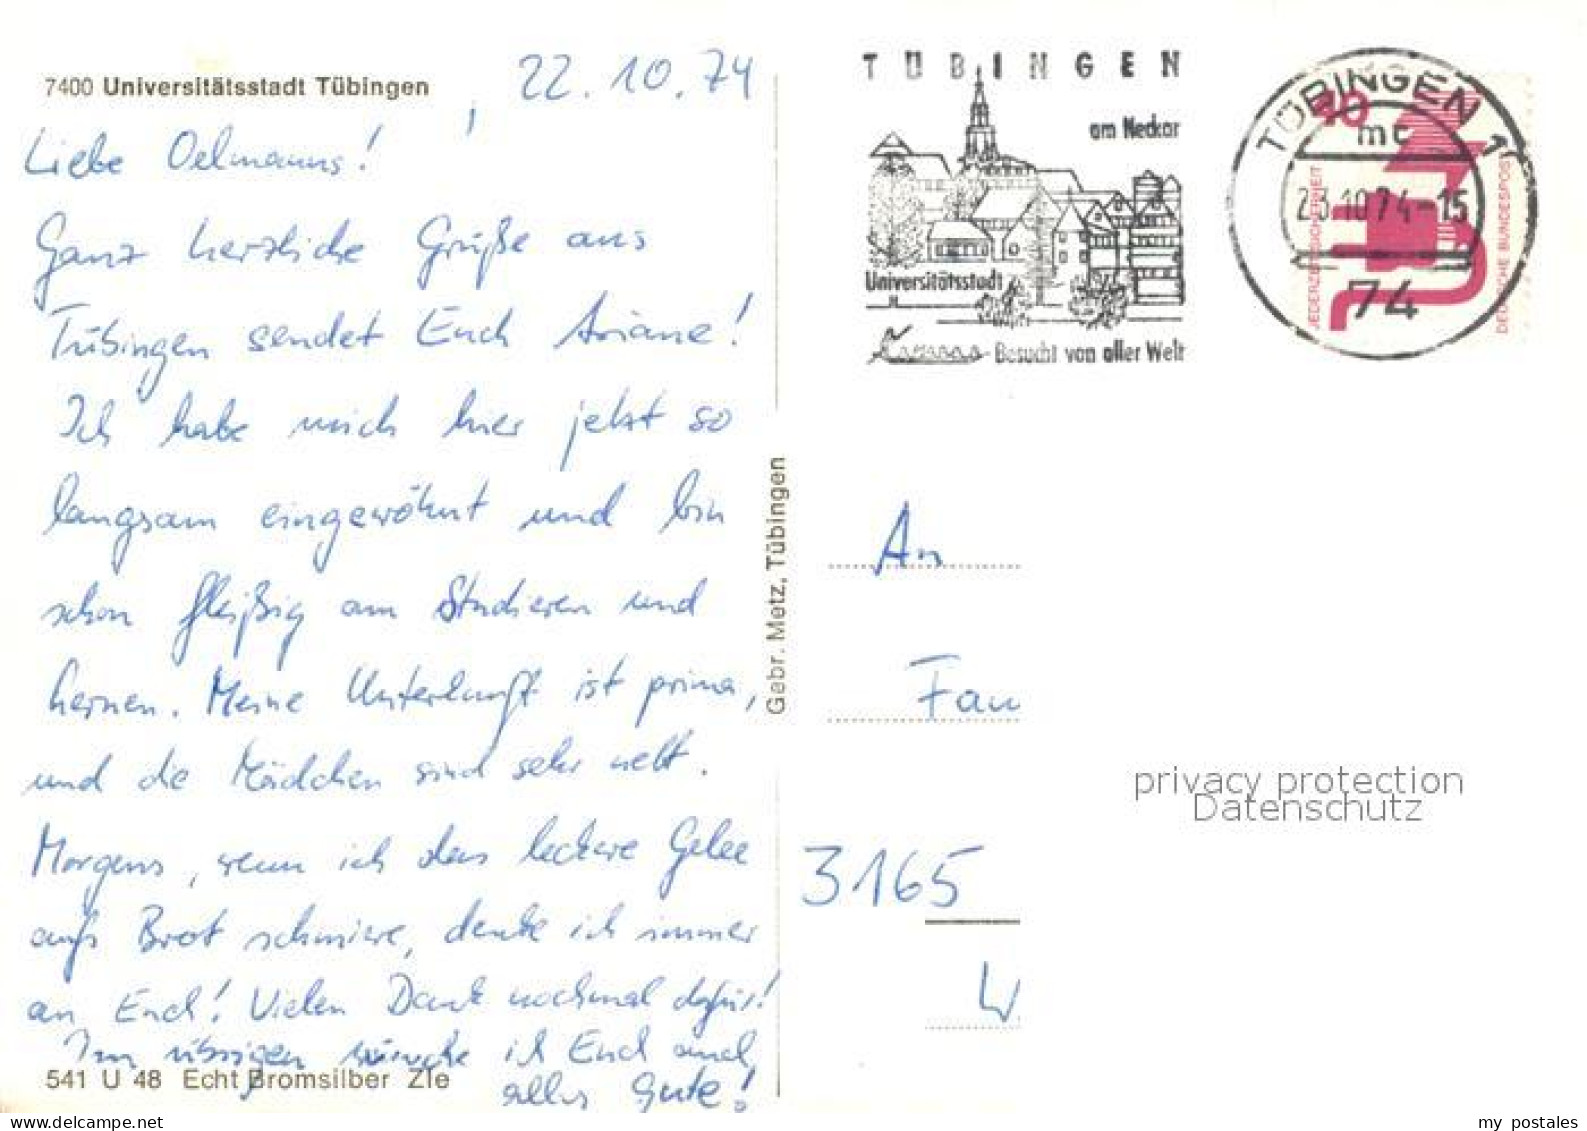 7400 Universitätsstadt Tübingen, 22.10.74
Liebe Oelmanns!
Ganz herzliche Grüße aus
Tübingen sendet Euch Ariane!
Ich habe mich hier jetzt so
langsam eingewöhnt und bin
schon fleißig am Studieren und
Lernen. Meine Unterkunft ist prima,
und die Mädchen sind sehr nett.
Morgens, wenn ich das leckere Gelee
aufs Brot schmiere, denke ich immer
an Euch! Vielen Dank nochmal dafür!
Im übrigen wünsche ich Euch auch
alles Gute!
541 U 48 Echt Bromsilber Zie
Gebr. Metz, Tübingen
TÜBINGEN
am Neckar
Universitätsstadt
Besucht von aller Welt
TÜBINGEN 1
mc
23.10.74-15
74
40
JEDERZEIT SICHERHEIT
DEUTSCHE BUNDESPOST
An
Fam
3165
privacy protection
Datenschutz
my postales